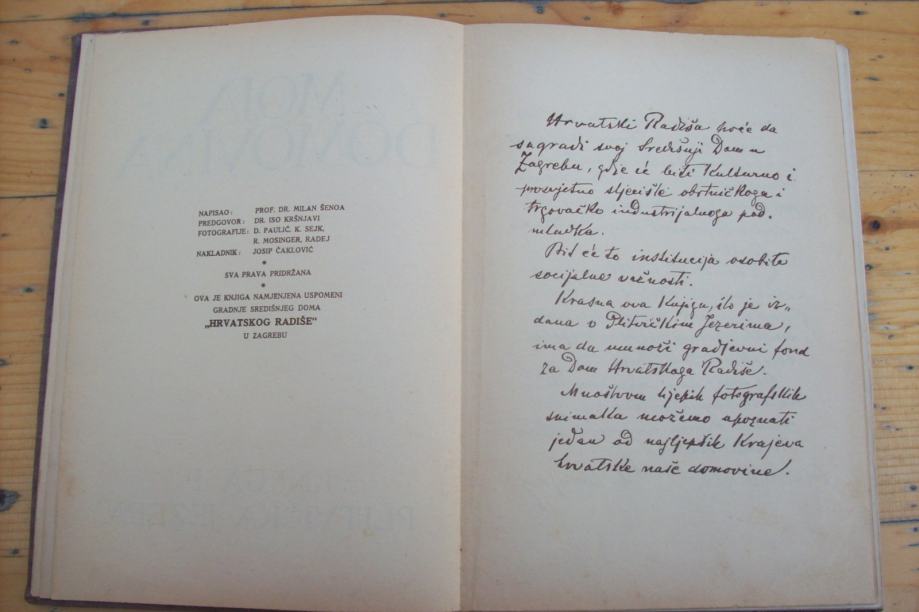 NAPISAO: PROF. DR. MILAN ŠENOA
PREDGOVOR: DR. ISO KRŠNJAVI
FOTOGRAFIJE: D. PAULIČ, K. SEJK,
R. MOSINGER, RADEJ
NAKLADNIK: JOSIP ČAKLOVIĆ
*
SVA PRAVA PRIDRŽANA
*
OVA JE KNJIGA NAMJENJENA USPOMENI
GRADNJE SREDIŠNJEG DOMA
„HRVATSKOG RADIŠE"
U ZAGREBU
Hrvatski Radiša hoće da
sagradi svoj Središnji Dom u
Zagrebu, gdje će biti Kulturno i
prosvjetno stjecište obrtničkoga i
trgovačko industrijalnoga pod-
mladka.
Bit će to institucija osobite
socijalne važnosti.
Krasna ova Knjiga, što je iz-
dana o Plitvičkim Jezerima,
ima da umnoži gradjevni fond
za Dom Hrvatskoga Radiše.
Mnoštvom lijepih fotografskih
snimaka možemo upoznati
jedan od najljepših Krajeva
hrvatske naše domovine.